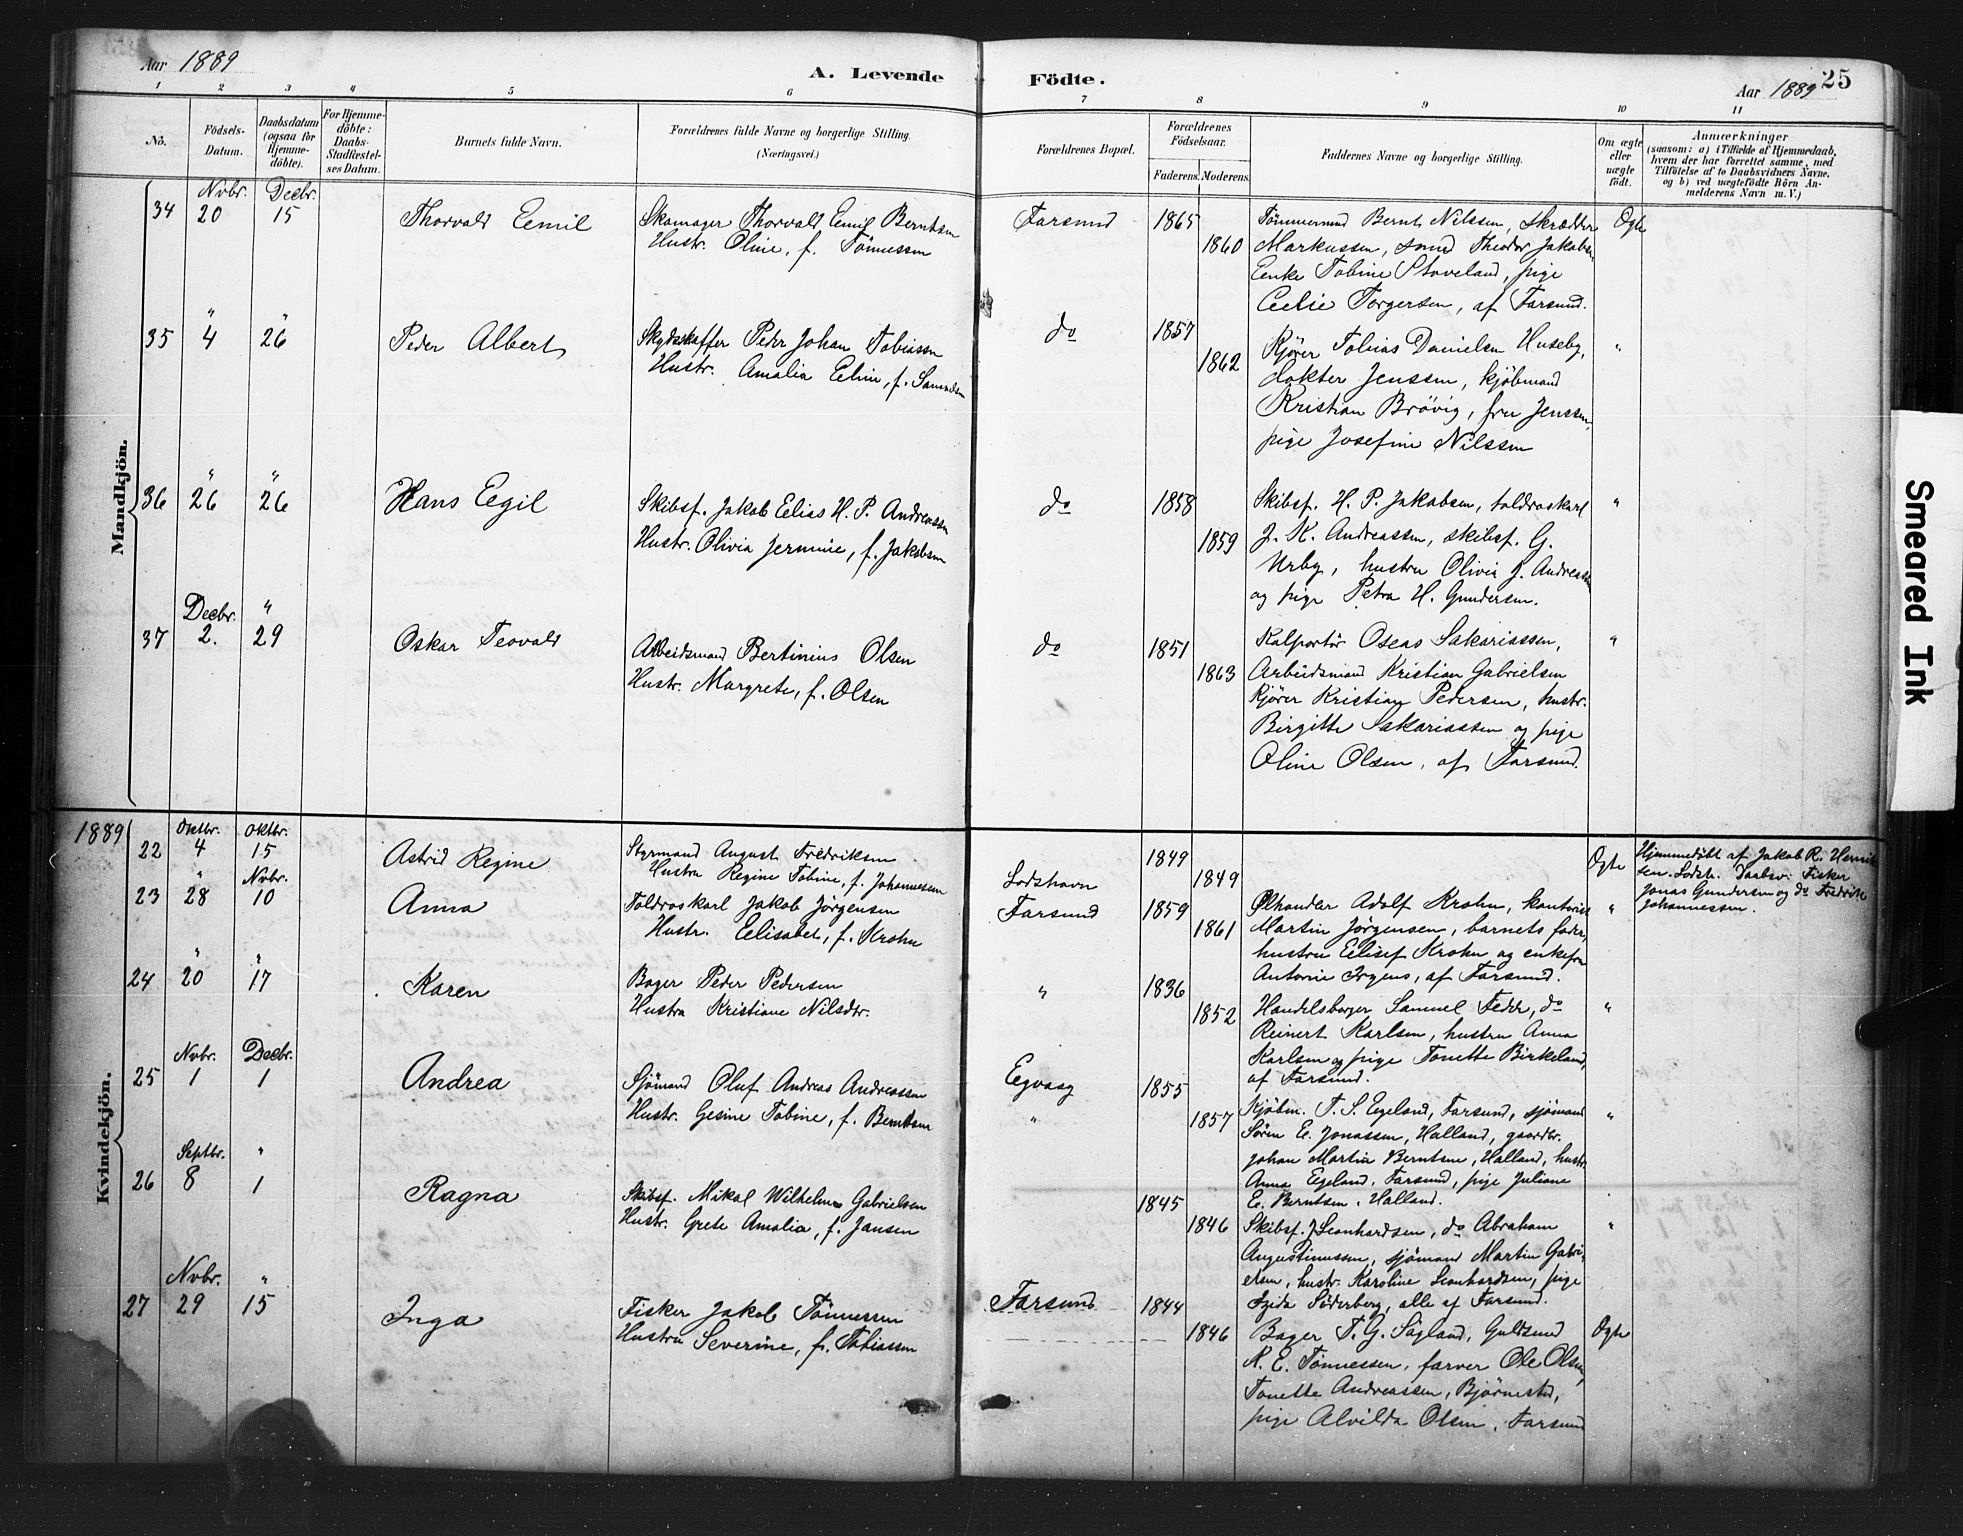 Aar 1889
A. Levende Födte.
Aar 1889
25
1 2 3 4 5 6 7 8 9 10 11
No.
Födsels-
Datum.
Daabsdatum
(ogsaa for
Hjemme-
döbte).
For Hjemme-
döbte:
Daabs-
Stadfæstel-
ses Datum.
Barnets fulde Navn.
Forældrenes fulde Navne og borgerlige Stilling.
(Næringsvei.)
Forældrenes Bopæl.
Forældrenes
Födselsaar.
Faderens. Moderens.
Faddernes Navne og borgerlige Stilling.
Om ægte
eller
uægte
födt.
Anmærkninger
(saasom: a) i Tilfælde af Hjemmedaab,
hvem der har forrettet samme, med
Tilföielse af to Daabsvidners Navne,
og b) ved uægtefödte Börn An-
melderens Navn m. V.)
Mandkjön.
Novbr. Decbr.
34 20 15 Thorvald Emil
Skomager Thorvald Emil Berntsen
Hustr. Oline, f. Tønnessen
Farsund 1865 1860
Tømmermand Bernt Nilssen, Skrædder
Markussen, Theodor Jakobsen
Enke Tobine Staveland, pige
Celie Torgersen, af Farsund.
Ægte
" "
35 4 26 Peder Albert
Skydsskaffer Peder Johan Tobiassen
Hustr. Amalia Elin, f. Samuelsen
do 1857 1862
Kjører Tobias Danielsen Huseby,
dokter Jenssen, kjøbmand
Kristian Brøvig, fru Jenssen,
pige Josefine Nilssen
"
" "
36 26 26 Hans Egil
Skibsf. Jakob Elias H. P. Andreassen
Hustr. Olivia Jermine, f. Jakobsen
do 1858 1859
Skibsf. H. P. Jakobsen, toldroskarl
J. K. Andreassen, skibsf. G.
Urby, hustru Olivia J. Andreassen
og pige Petra H. Gundersen.
"
Decbr. "
37 2. 29 Oskar Teovald
Arbeidsmand Bertinius Olsen
Hustr. Margrete, f. Olsen
do 1851 1863
Kolportør Oseas Sakariassen,
Arbeidsmand Kristian Gabrielsen
Kjører Kristian Pedersen, hustr.
Birgitte Sakariassen og pige
Oline Olsen, af Farsund.
"
1889
Kvindekjön.
Oktbr. Oktbr.
22 4 15 Astrid Regine
Styrmand August Fredriksen
Hustru Regine Tobine, f. Johannessen
Lodshavn 1849 1849
Ægte
Hjemmedøbt af Jakob R. Henrik
sen. Lodsh. Daabsv: Fisker
Jonas Gundersen og do Fredrik
Johannessen.
" Novbr.
23 28 10 Anna
Toldroskarl Jakob Jørgensen
Hustr. Elisabet, f. Krohn
Farsund 1859 1861
Ølhandler Adolf Krohn, kontorist
Martin Jørgensen, barnets fader,
hustru Elisef Krohn og enkefru
Antonie Irgens, af Farsund.
"
" "
24 20 17 Karen
Bager Peder Pedersen
Hustru Kristiane Nilsdtr.
" 1836 1852
Handelsborger Samuel Fedde, do
Reinert Karlsen, hustru Anna
Karlsen og pige Tonette Birkeland,
af Farsund.
"
Novbr. Decbr.
25 1 1 Andrea
Sjømand Oluf Andreas Andreassen
Hustr. Gesine Tobine, f. Berntsen
Egvaag
"
1855 1857
Kjøbm. T. S. Egeland, Farsund, sjømand
Søren E. Jonassen, Halland, gaardbr.
Johan Martin Berntsen, Halland, hustr.
Anna Egeland, Farsund, pige Juliane
E. Berntsen, Halland.
"
Septbr. "
26 8 1 Ragna
Skibsf. Mikal Wilhelm Gabrielsen
Hustr. Grete Amalia, f. Jansen
1845 1846
Skibsf. J. Leonhardsen, do Abraham
Augustinussen, sjømand Martin Gabri-
elsen, hustr. Karoline Leonhardsen, pige
Söderberg, alle af Farsund.
"
Novbr. "
27 29 15 Inga
Fisker Jakob Tønnessen
Hustru Severine, f. Tobiassen
Farsund 1844 1846
Bager T. G. Sigland, Guldsmed
N. E. Tønnessen, farver Ole Olsen,
Tonette Andreassen, Bjørnestad,
pige Alvilda Olsen, Farsund
Ægte
Smeared Ink